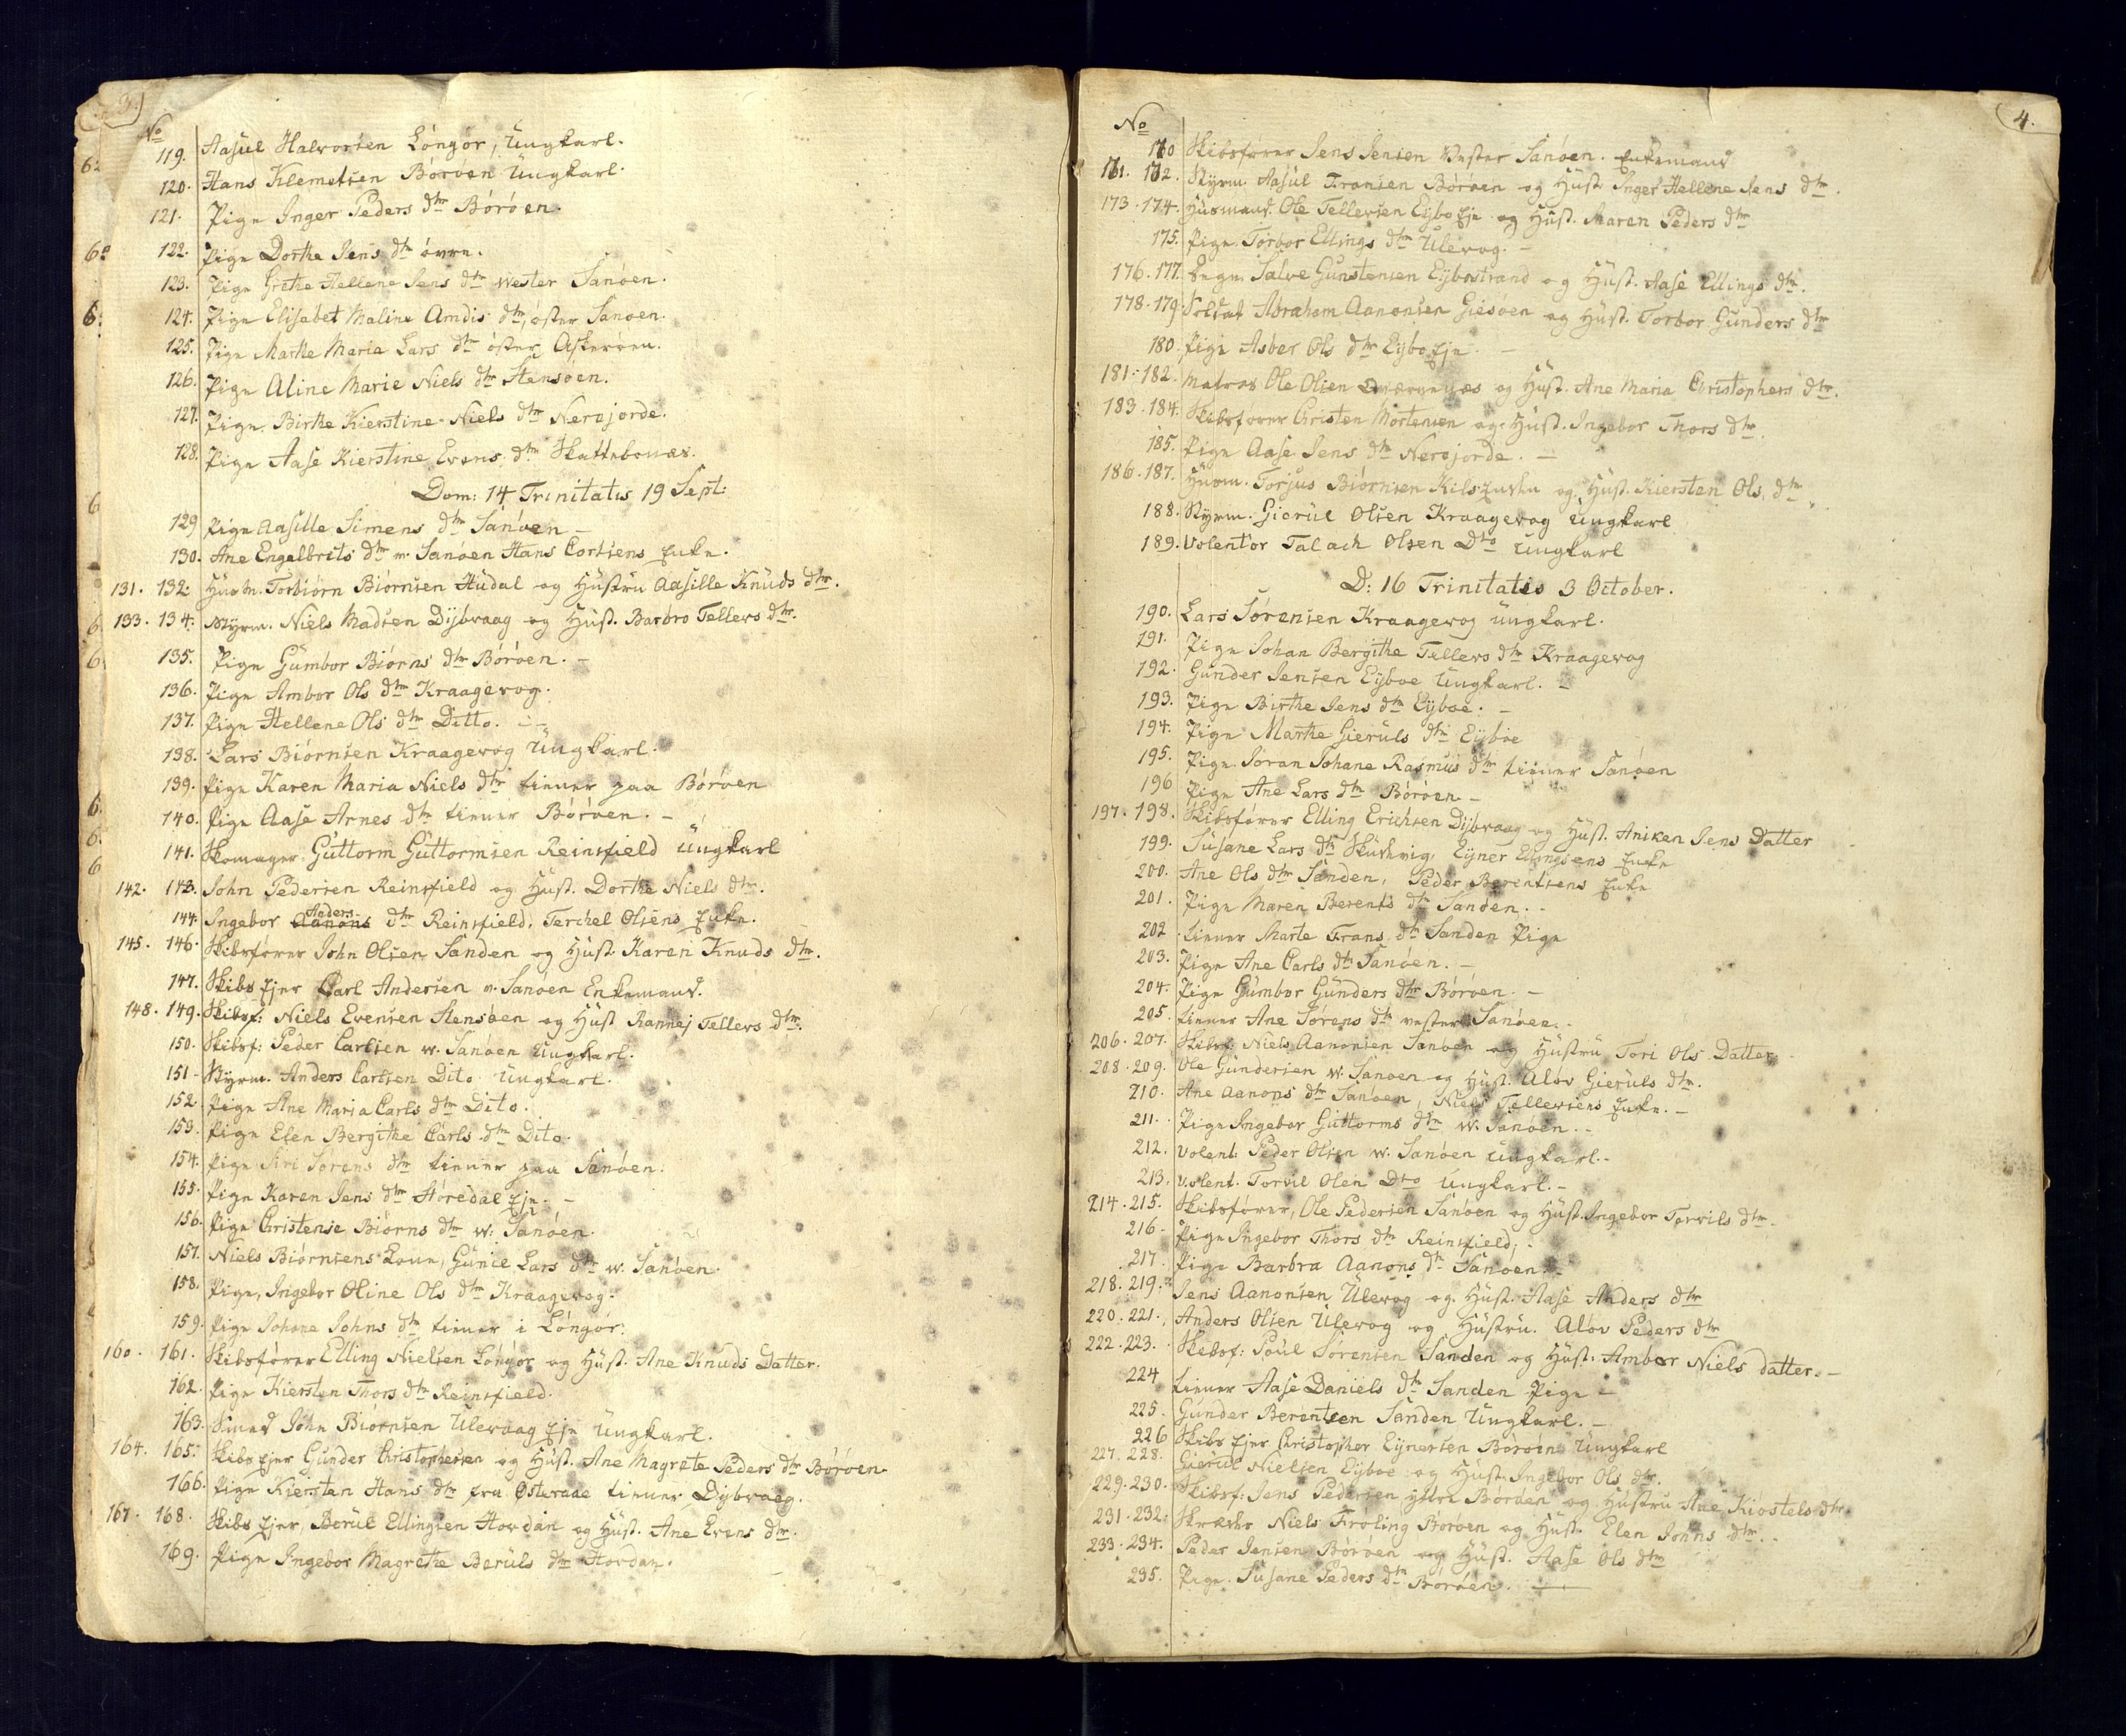 3.)
No
119. Aasul Halvorsen Lóngór, Ungkarl.
120. Hans Klemetsen Bóróen Ungkarl.
121. Pige Inger Peders dtr Bóróen.
122. Pige Dorthe Jens dtr óvre.
123. Pige Grethe Hellene Jens dtr Wester Sanóen.
124. Pige Elisabet Maline Amdis dtr, óster Sanoen.
125. Pige Marthe Maria Lars dtr óster Askeróen.
126. Pige Aline Marie Niels dtr Stensoen.
127. Pige Birthe Kierstine Niels dtr Nerojorde.
128. Pige Aase Kierstine Evens dtr Skattebonæs.
Dom: 14 Trinitatis 19 Sept:
129 Pige Aasille Simens dtr Sanóen –
130. Ane Engelbrits dtr w. Sanóen Hans Cortsens Enke.
131. 132. Husm. Torbiórn Biórnsen Hudal og Hustru Aasille Knuds dtr.
133. 134. Styrm. Niels Madsen Dijbvaag og Hust. Barbro Tellevs dtr.
135. Pige Gumbor Biórns dtr Bóróen. –
136. Pige Ambor Ols dtr Kraagevog.
137. Pige Hellene Ols dtr Ditto. – –
138. Lars Biórnsen Kraagevog Ungkarl.
139. Pige Karen Maria Niels dtr tiener paa Bóróen
140. Pige Aase Arnes dtr tiener Bóróen. –
141. Skomager Guttorm Guttormsen Reinsfield Ungkarl
142. 143. John Pedersen Reinsfield og Hust. Dorthe Niels dtr.
144. Ingebor Aanons Anders dtr Reinsfield, Terchel Olsens Enke.
145. 146. Skibsfórer John Olsen Sanden og Hust. Karen Knuds dtr.
147. Skibs Ejer Carl Andersen v. Sanoen Enkemand.
148. 149. Skibsf: Niels Evensen Stensóen og Hust Rannej Tellevs dtr.
150. Skibsf: Peder Carlsen w. Sanoen Ungkarl.
151 Styrm. Anders Carlsen Dito Ungkarl.
152. Pige Ane Maria Carls dtr Dito.
153. Pige Elen Bergithe Carls dtr Dito.
154. Pige Siri Sórens dtr tiener paa Sanóen.
155. Pige Karen Jens dtr Stóredal Eje. –
156. Pige Christense Biórns dtr w. Sanóen.
157. Niels Biórnsens Kone, Gunil Lars dtr w. Sanóen.
158. Pige, Ingebor Oline Ols dtr Kraagevog.
159. Pige Johane Johns dtr tiener i Lóngór.
160. 161. Skibsfórer Elling Nielsen Lóngór og Hust. Ane Knuds Datter.
162. Pige Kiersten Thors dtr Reinsfield.
163. Smed John Biórnsen Ulevaag Eje Ungkarl.
164. 165. Skibs Ejer Gunder Christophersen og Hust. Ane Magrete Peders dtr Bóróen.
166. Pige Kiersten Hans dtr fra Østeraae tiener Dijbvaag.
167. 168. Skibs Ejer, Berul Ellingsen Hovdan og Hust. Ane Evens dtr.
169. Pige Ingebor Magrethe Beruls dtr Hovdan.
4.
No
170 Skibsfører Jens Jensen Vester Sanóen. Enkemand
171. 172. Styrm. Aasul Fransen Bóróen og Hust. Inger Hellene Jens dtr.
173. 174. Husmand Ole Tellevsen Eijbo Eje og Hust. Maren Peders dtr
175. Pige Torbor Ellings dtr Ulevog. –
176. 177. Salve Gunstensen Eijbostrand og Hust. Aase Ellings dtr.
178. 179. Soldat Abraham Aanonsen Giesóen og Hust. Torbor Gunders dtr
180. Pige Asber Ols dtr Eijbo Eje. –
181. 182. Matros Ole Olsen Qværnenæs og Hust. Ane Maria Christophers dtr.
183. 184. Skibsfórer Christen Mortensen og Hust. Ingebor Thors dtr.
185. Pige Aase Jens dtr Nerojorde. –
186. 187. Husm. Torjus Biórnsen og Hust. Kiersten Ols dtr
188. Styrm. Gierul Olsen Kraagevog Ungkarl
189. Volentór Talach Olsen Dto Ungkarl
D: 16 Trinitatis 3 October.
190. Lars Sórensen Kraagevog Ungkarl.
191. Pige Johan Bergithe Tellevs dtr Kraagevog
192. Gunder Jensen Eijboe Ungkarl. –
193. Pige Birthe Jens dtr Eijboe. –
194. Pige Marthe Gieruls dtr Eijboe
195. Pige Soran Johane Rasmus dtr tiener Sanóen
196 Pige Ane Lars dtr Bóróen –
197. 198. Skibsfórer Elling Erichsen Dijbvaag og Hust. Aniken Jens Datter
199. Susane Lars dtr Skutevig, Ejner Ellingsens Enke
200. Ane Ols dtr Sanden, Peder Berentsens Enke
201. Pige Maren Berents dtr Sanden. –
202. tiener Marte Frans dtr Sanden Pige
203. Pige Ane Carls dtr Sanóen. –
204. Pige Gumbor Gunders dtr Bóróen. –
205. tiener Ane Sórens dtr vester Sanóen. –
206. 207. Skibsf: Niels Aanonsen Sanóen og Hustru Tori Ols Datter
208. 209. Ole Gundersen w. Sanoen og Hust. Alóv Gieruls dtr.
210. Ane Aanons dtr Sanóen, Niels Tellevsens Enke. –
211. Pige Ingebor Guttorms dtr w. Sanóen. –
212. Volent: Peder Olsen w. Sanóen Ungkarl. –
213. Volent. Torvil Olen Dto Ungkarl. –
214. 215. Skibsfórer, Ole Pedersen Sanóen og Hust. Ingebor Torvils dtr –
216 Pige Ingebor Thors dtr Reinsfield, –
217. Pige Barbra Aanons dtr Sanoen. –
218. 219. Jens Aanonsen Ulevog og Hust. Aase Anders dtr
220. 221. Anders Olsen Ulevog og Hustru. Alóv Peders dtr
222. 223. Skibsf: Poul Sórensen Sanden og Hust: Ambor Niels datter. –
224 tiener Aase Daniels dtr Sanden Pige –
225. Gunder Berentsen Sanden Ungkarl. –
226 Skibs Ejer Christopher Ejnersen Bóróen Ungkarl
227. 228. Gierul Nielsen Eijboe og Hust. Ingebor Ols dtr.
229. 230. Skibsf: Jens Pedersen ytre Bóróen og Hustru Ane Kióstels dtr
231. 232. Niels Fróling Boróen og Hust. Elen Johns dtr. –
233. 234. Peder Jensen Bóróen og Hust. Aase Ols dtr
235. Pige Susane Peders dtr Bóróen. –